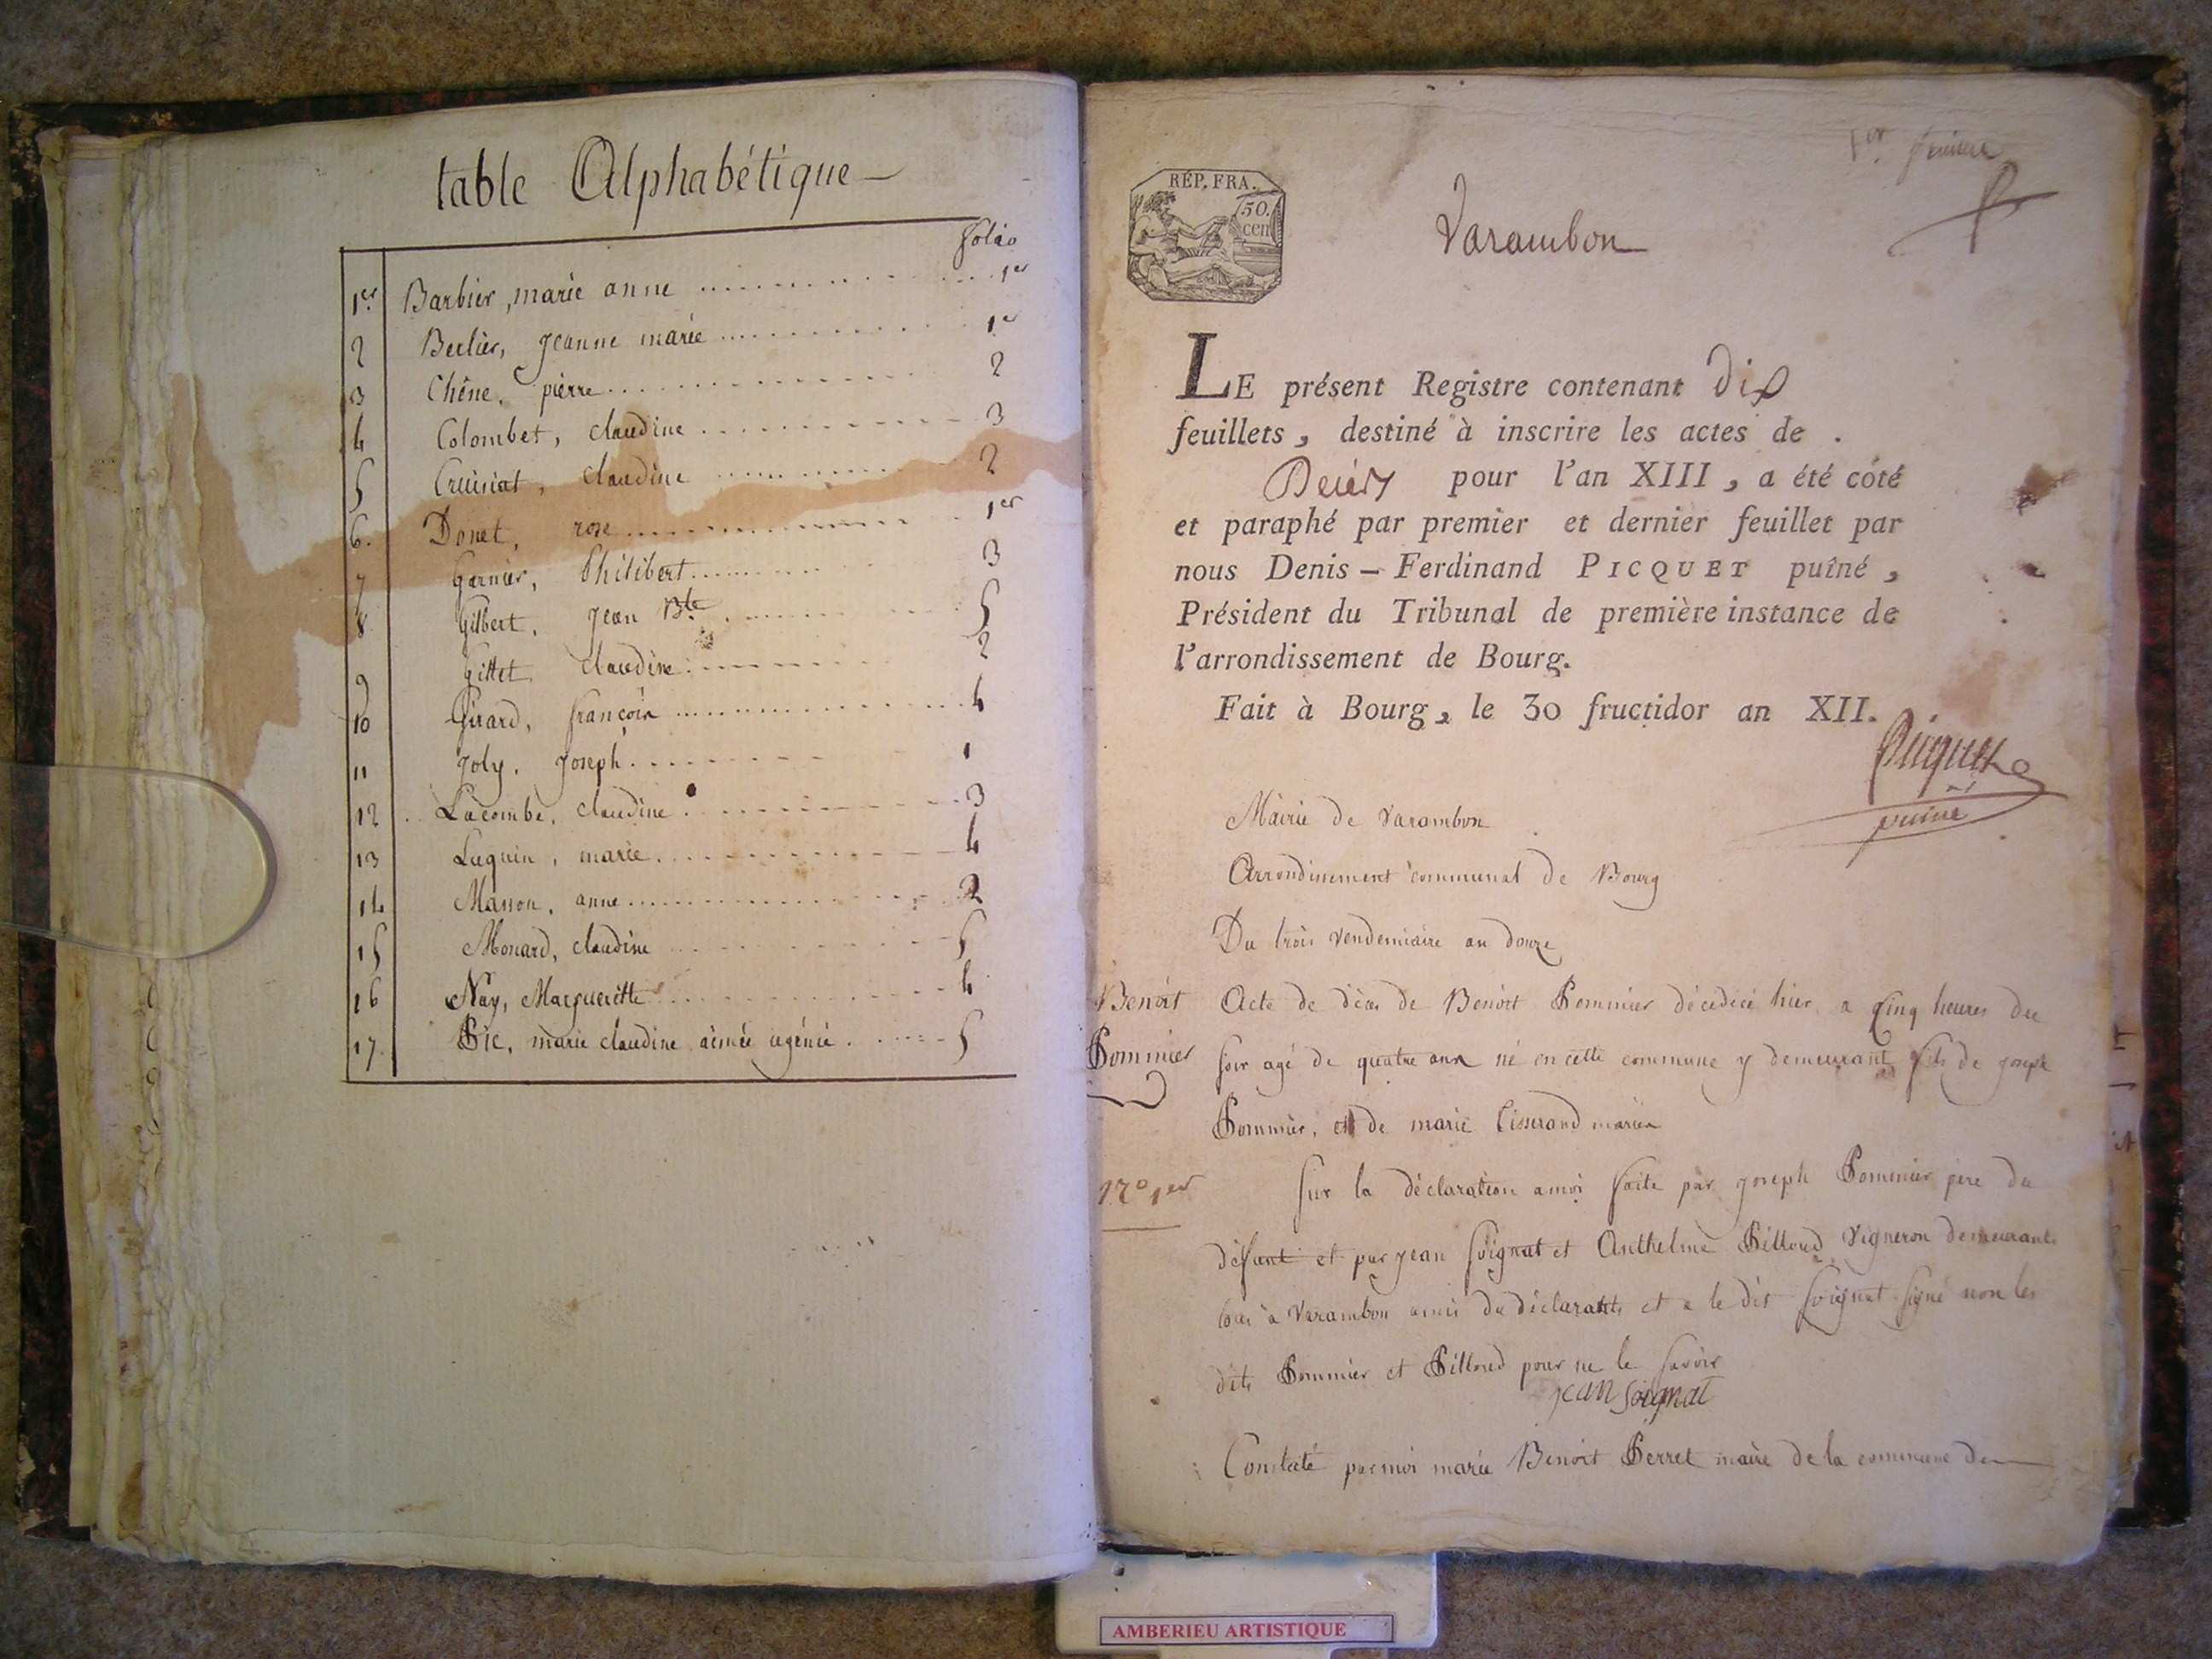 table Alphabétique
folio
1er Barbier, marie anne 1er
2 Berlier, Jeanne marie 1er
3 Chêne, pierre 2
4 Colombet, claudine 3
5 Cruisiat, claudine 2
6. Donet, rose 1er
7 Garnier, Philibert 3
8 Gilbert, Jean Bte. 5
9 Gittet, claudine 2
10 Girard, françois 4
11 Joly, Joseph 1
12 Lacombe, claudine 3
13 Luquin, marie 4
14 Masson, anne 2
15 Monard, claudine 5
16 Nay, Margueritte 4
17 Pic, marie claudine aimée ugénie 5
1er. feuille
RÉP. FRA.
50.
cen
Varambon
LE présent Registre contenant Dix
feuillets, destiné à inscrire les actes de
Decès pour l'an XIII, a été coté
et paraphé par premier et dernier feuillet par
nous Denis-Ferdinand PICQUET puîné,
Président du Tribunal de première instance de
l'arrondissement de Bourg.
Fait à Bourg, le 30 fructidor an XII.
Picquet
puiné
Mairie de Varambon
Arrondissement communal de Bourg
Du trois vendemiaire an douze
Benoit
Pommier
Acte de décès de Benoit Pommier décédé hier a cinq heures du
soir agé de quatre ans né en cette commune y demeurant fils de Joseph
Pommier, et de marie Tisserand mariés
No 1er
Sur la déclaration a moi faite par Joseph Pommier pere du
défunt et par Jean Soignat et Anthelme Billoud Vigneron demeurants
tous à Varambon amis du déclarants et a le dit Soignat signé non les
dits Pommier et Billoud pour ne le savoir
Jean Soignat
Constaté par moi marie Benoit Perret maire de la commune de
AMBERIEU ARTISTIQUE